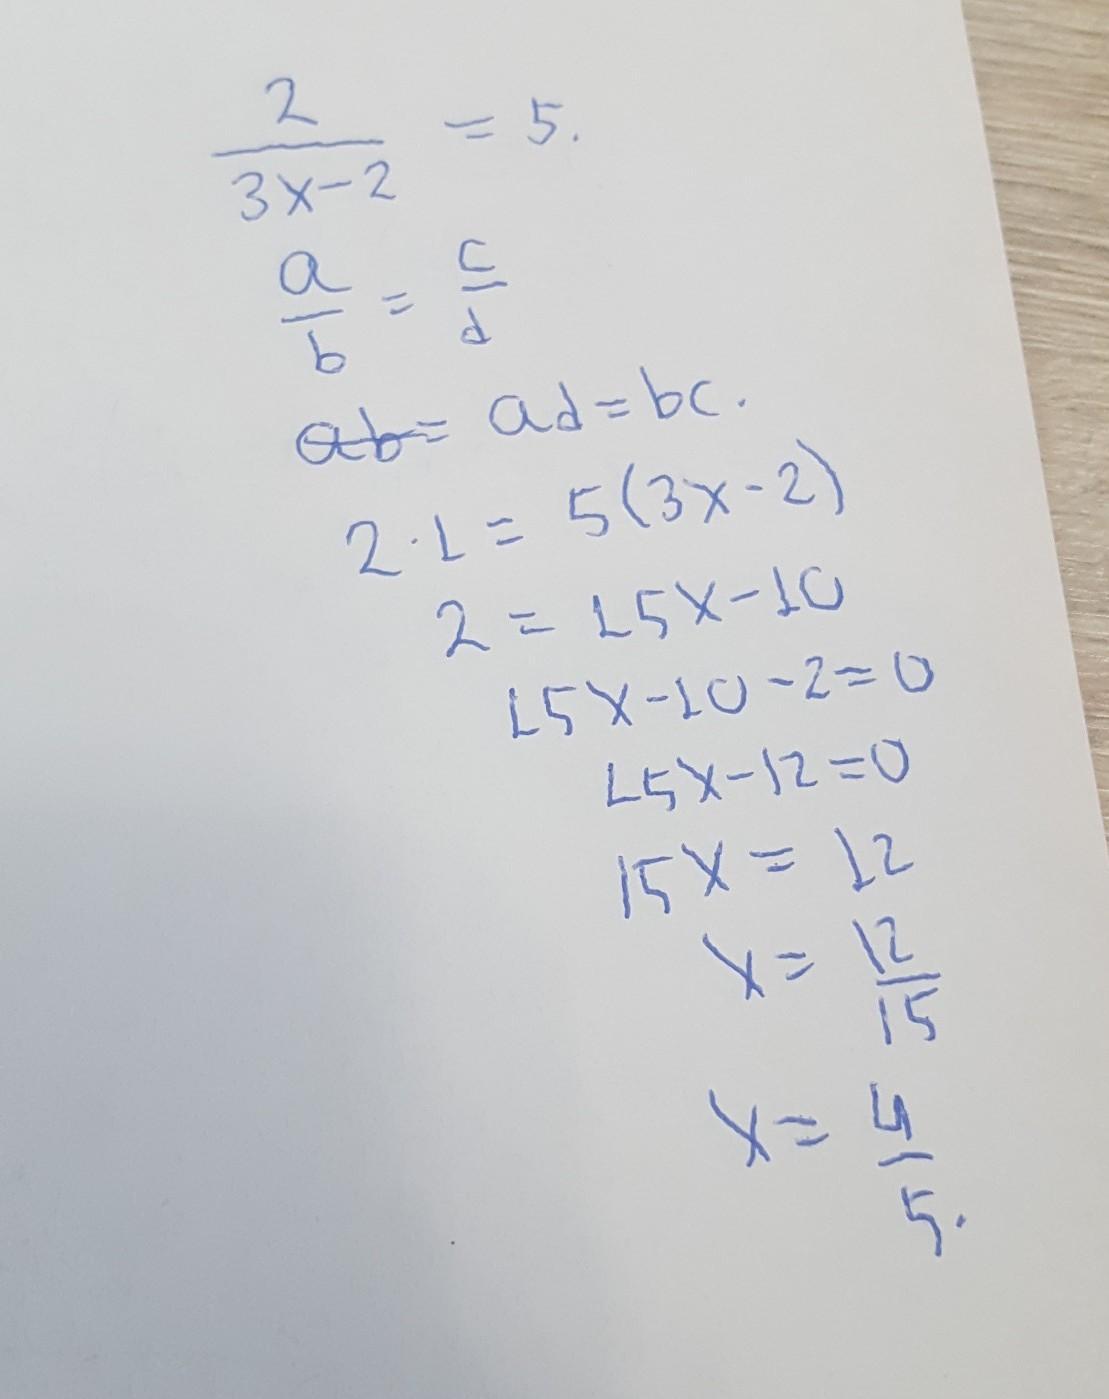 2/(3x-2) = 5.
a/b = c/d
ab= ad=bc.
2·1= 5(3x-2)
2 = 15x-10
15x-10-2=0
15x-12=0
15x = 12
x= 12/15
x= 4/5.